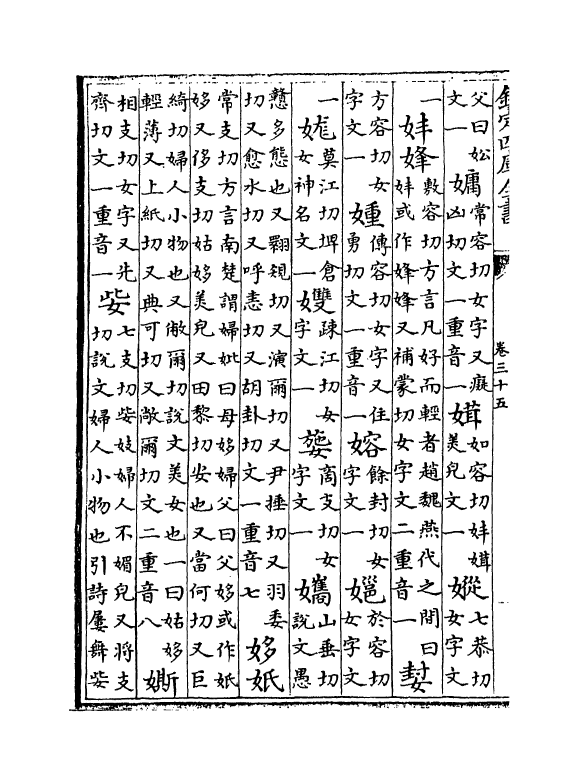 欽定四庫全書 卷三十五
父曰妐文一 嫞常容切女字又癡凶切文一重音一 媶如容切妦媶美皃文一 七恭切女字文
一 妦㛔敷容切方言凡好而輕者趙魏燕代之間曰妦或作㛔㛔又補蒙切女字文二重音一
方容切女字文一 媑傳容切女字又住勇切文一重音一 嫆餘封切女字文一 於容切女字文
一 娏莫江切埤倉女神名文一 孇疎江切女字文一 商支切女字文一 孈山垂切說文愚
戇多態也又翾規切又演爾切又尹捶切又羽委切又愈水切又呼恚切又胡卦切文一重音七 姼
常支切方言南楚謂婦妣曰母姼婦父曰父姼或作姼又侈支切姑姼美皃又田黎切安也又當何切又巨
綺切婦人小物也又敞爾切說文美女也一曰姑姼輕薄又上紙切又典可切又敞爾切文二重音八
相支切女字又先齊切文一重音一 姕七支切姕妓婦人不媚皃又將支切說文婦人小物也引詩屢舞姕